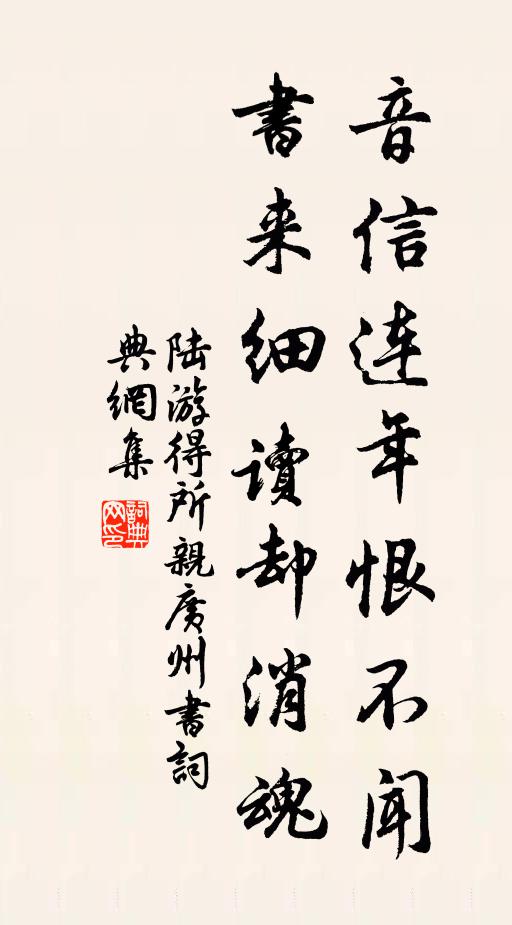 音信連年恨不聞
書来細讀却消魂
陆游得所親廣州書詞
典網集
詞典网印